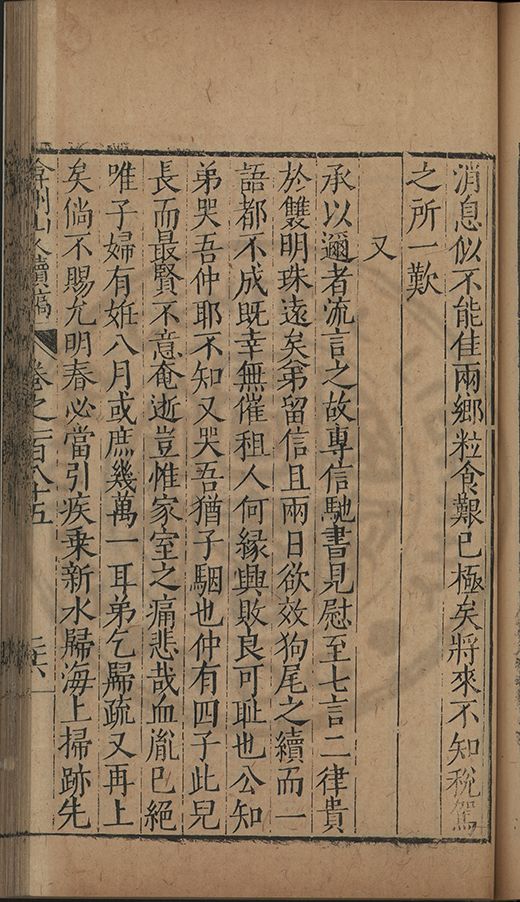 消息似不能佳兩鄉粒食艱已極矣將來不知稅駕
之所一歎
又
承以邇者流言之故專信馳書見慰至七言二律貴
於雙明珠遠矣弟留信且兩日欲效狗尾之續而一
語都不成既幸無催租人何緣興敗良可耻也公知
弟哭吾仲耶不知又哭吾猶子駰也仲有四子此兒
長而最賢不意奄逝豈惟家室之痛悲哉血胤已絕
唯子婦有姙八月或庶幾萬一耳弟乞歸疏又再上
矣倘不賜允明春必當引疾乗新水歸海上掃跡先
弇州山人續稿
卷之一百八十五